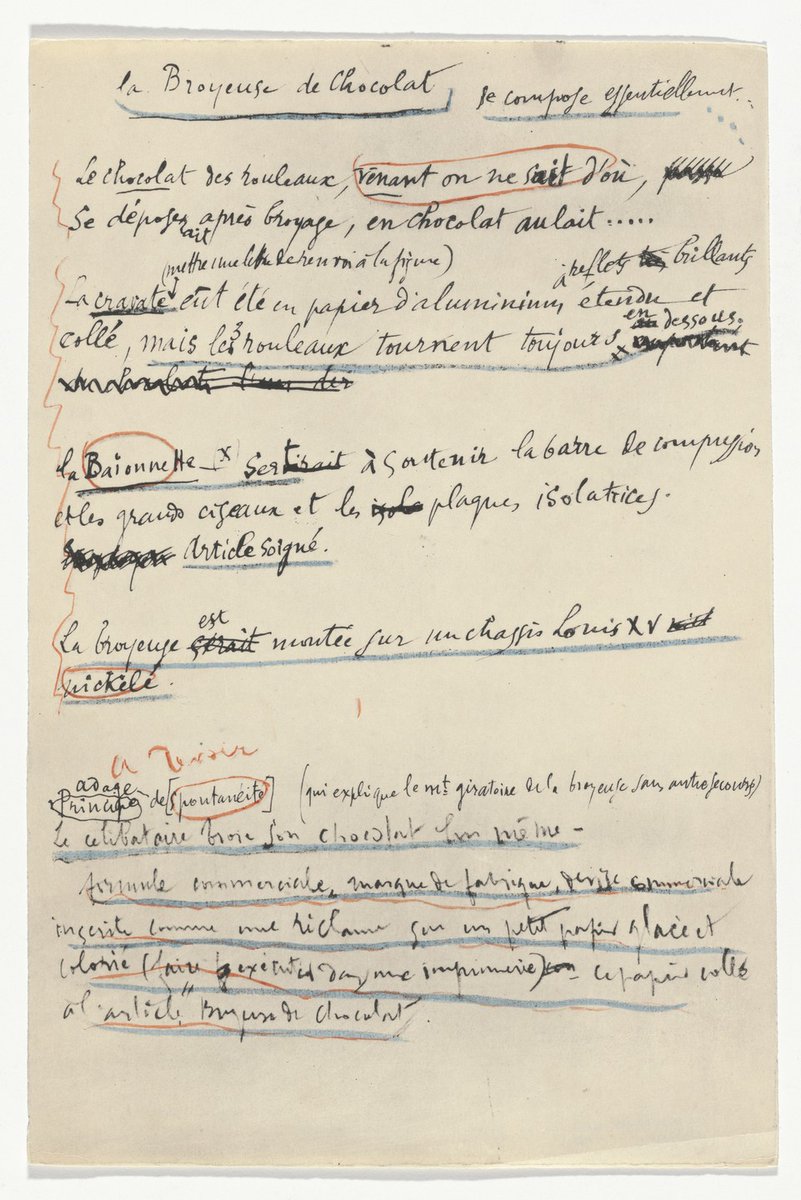 la Broyeuse de Chocolat se compose essentiellement...
Le chocolat des rouleaux, venant on ne sait d'où,
se déposerait après broyage, en chocolat au lait.....
(mettre une lettre de renvoi à la figure)
à reflets brillants
La cravate eût été en papier d'aluminium, étendu et
collé, mais les 3 rouleaux tournent toujours en dessous.
la Baïonnette (x) sert à soutenir la barre de compression
et les grands ciseaux et les plaques isolatrices.
Article soigné.
est
La broyeuse serait montée sur un chassis Louis XV
nickelé.
A Revoir
adage
Principe de [spontanéité] (qui explique le mt giratoire de la broyeuse sans autre secours)
Le célibataire broie son chocolat lui même -
formule commerciale, marque de fabrique, devise commerciale
inscrite comme une réclame sur un petit papier glacé et
colorié (faire exécuter dans une imprimerie) - ce papier collé
à l'article "Broyeuse de Chocolat"